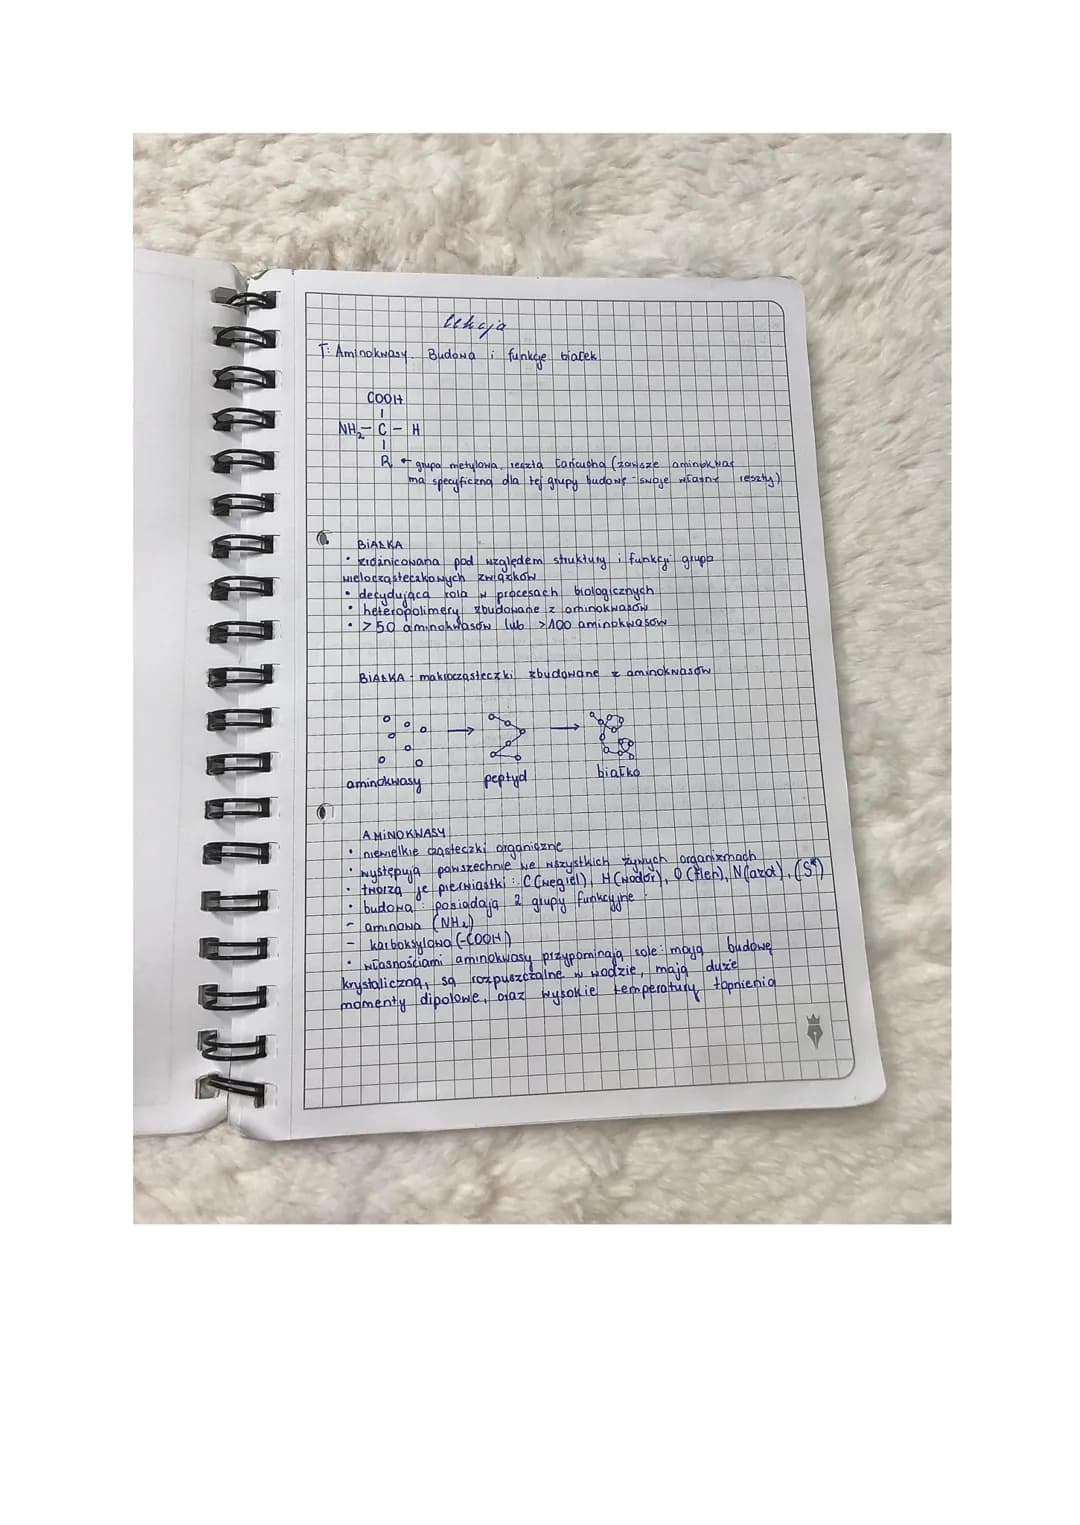 Lekcja
T: Aminokwasy. Budowa i funkcje białek.
COOH
|
NH₂ – C – H
|
R ← grupa metylowa, reszta łańcucha (zawsze aminokwas
ma specyficzną dla tej grupy budowę - swoje własne reszty)
BIAŁKA
• zróżnicowana pod względem struktury i funkcji grupa
wielocząsteczkowych związków
• decydująca rola w procesach biologicznych
• heteropolimery zbudowane z aminokwasów
• >50 aminokwasów lub >100 aminokwasów
BIAŁKA - makrocząsteczki zbudowane z aminokwasów
aminokwasy → peptyd → białko
AMINOKWASY
• niewielkie cząsteczki organiczne
• występują powszechnie we wszystkich żywych organizmach
• tworzą je pierwiastki: C (węgiel), H (wodór), O (tlen), N (azot), (S*)
• budowa: posiadają 2 grupy funkcyjne
- aminowa (NH₂)
- karboksylowa (-COOH)
• własnościami aminokwasy przypominają sole: mają budowę
krystaliczną, są rozpuszczalne w wodzie, mają duże
momenty dipolowe, oraz wysokie temperatury topnienia